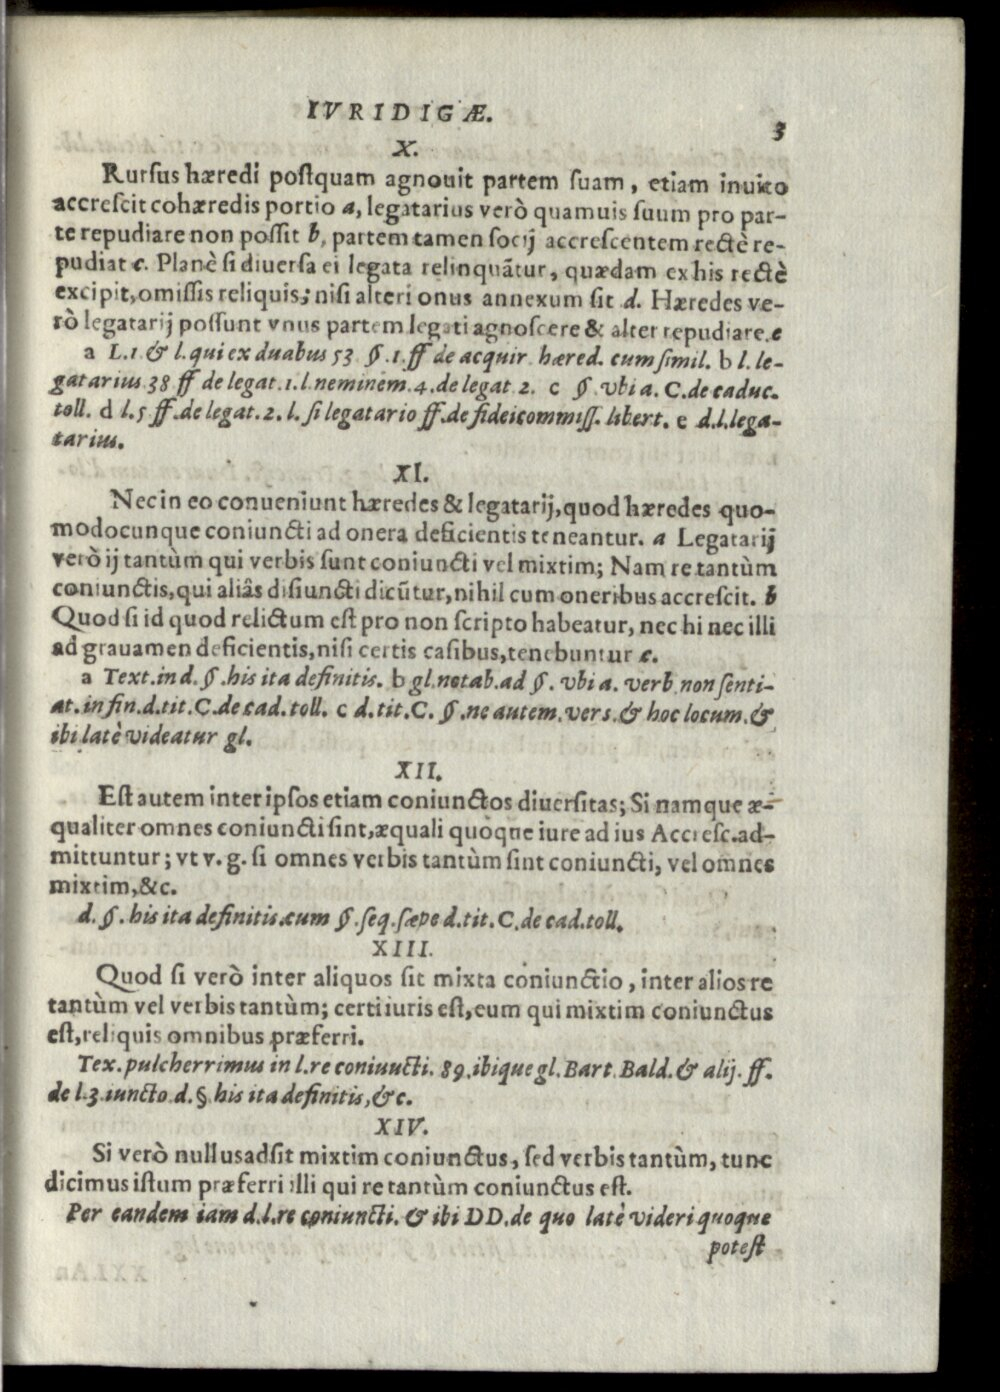 IVRIDIGÆ.
3
X.
Rursus hæredi postquam agnouit partem suam, etiam inuito
accrescit cohæredis portio a, legatarius verò quamuis suum pro par-
te repudiare non possit b, partem tamen socij accrescentem rectè re-
pudiat c. Planè si diuersa ei legata relinquãtur, quædam ex his rectè
excipit, omissis reliquis; nisi alteri onus annexum sit d. Hæredes ve-
rò legatarij possunt vnus partem legati agnoscere & alter repudiare. e
a L. 1. & l. qui ex duabus 53 §. 1. ff de acquir hæred. cum simil. b l. le-
gatarius 38 ff de legat. 1. l. neminem. 4. de legat 2. c §. vbi a. C. de caduc.
toll. d l. 5 ff. de legat. 2. l. si legatario ff. de fideicommiss. libert. e d. l. lega-
tarius.
XI.
Nec in eo conueniunt hæredes & legatarij, quod hæredes quo-
modocunque coniuncti ad onera deficientis teneantur. a Legatarij
verò ij tantùm qui verbis sunt coniuncti vel mixtim; Nam re tantùm
coniunctis, qui aliâs disiuncti dicũtur, nihil cum oneribus accrescit. b
Quod si id quod relictum est pro non scripto habeatur, nec hi nec illi
ad grauamen deficientis, nisi certis casibus, tenebuntur c.
a Text. in d. §. his ita definitis. b gl. notab. ad §. vbi a. verb non senti-
at. in fin. d. tit. C. de cad. toll. c d. tit. C. §. ne autem. vers. & hoc locum. &
ibi latè videatur gl.
XII.
Est autem inter ipsos etiam coniunctos diuersitas; Si namque æ-
qualiter omnes coniuncti sint, æquali quoque iure ad ius Accresc. ad-
mittuntur; vt v. g. si omnes verbis tantùm sint coniuncti, vel omnes
mixtim, &c.
d. §. his ita definitis. cum §. seq. sæpe d. tit. C. de cad. toll.
XIII.
Quod si verò inter aliquos sit mixta coniunctio, inter alios re
tantùm vel verbis tantùm; certi iuris est, eum qui mixtim coniunctus
est, reliquis omnibus præferri.
Tex. pulcherrimus in l. re coniuncti. 89. ibique gl. Bart. Bald. & alij. ff.
de l. 3. iuncto d. § his ita definitis, &c.
XIV.
Si verò nullus adsit mixtim coniunctus, sed verbis tantùm, tunc
dicimus istum præferri illi qui re tantùm coniunctus est.
Per eandem iam d. l. re coniuncti. & ibi DD. de quo latè videri quoque
potest